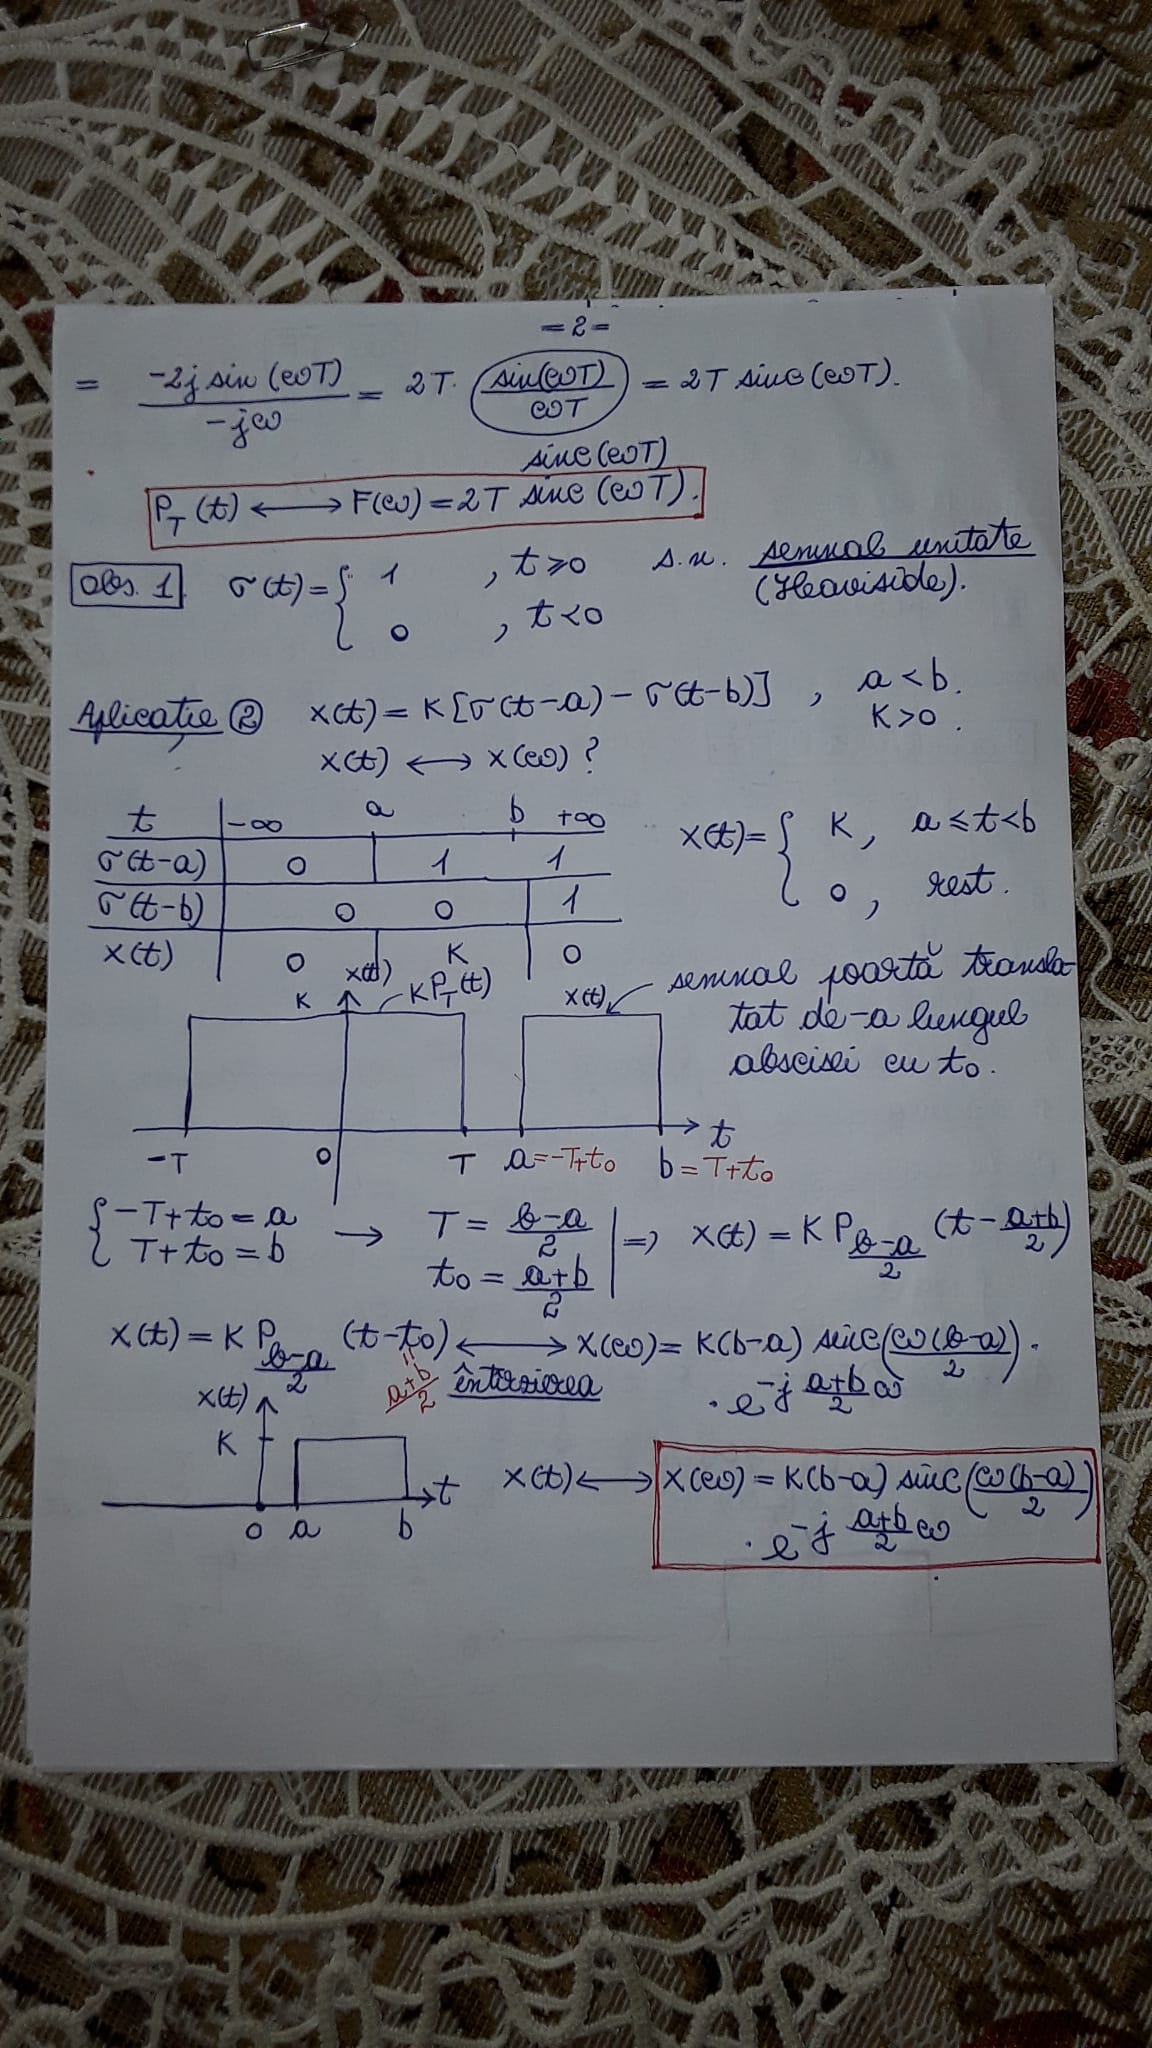 = 2 =
= -2j sin(ωT) / -jω = 2T · sin(ωT) / ωT = 2T sinc(ωT).
sinc(ωT)
P_T(t) ⟷ F(ω) = 2T sinc(ωT).
Obs. 1 σ(t) = { 1 , t ≥ 0 s.n. semnal unitate
0 , t < 0 (Heaviside).
Aplicație ② x(t) = K[σ(t-a) - σ(t-b)] , a < b.
K > 0.
x(t) ⟷ X(ω) ?
t | -∞ a b +∞
σ(t-a) | 0 | 1 1
σ(t-b) | 0 0 | 1
x(t) | 0 | K | 0
x(t) = { K, a ≤ t < b
0, rest.
x(t) K KP_T(t) x(t) semnal poartă transla-
tat de-a lungul
abscisei cu t₀.
-T 0 T a = -T+t₀ b = T+t₀ t
{ -T+t₀ = a → T = (b-a)/2 | ⇒ x(t) = K P_{(b-a)/2} (t - (a+b)/2)
T+t₀ = b t₀ = (a+b)/2
x(t) = K P_{(b-a)/2} (t-t₀) ⟷ X(ω) = K(b-a) sinc(ω(b-a)/2) ·
= (a+b)/2 întârzierea · e^{-j (a+b)/2 ω}
x(t)
K
0 a b t
x(t) ⟷ X(ω) = K(b-a) sinc(ω(b-a)/2)
· e^{-j (a+b)/2 ω}